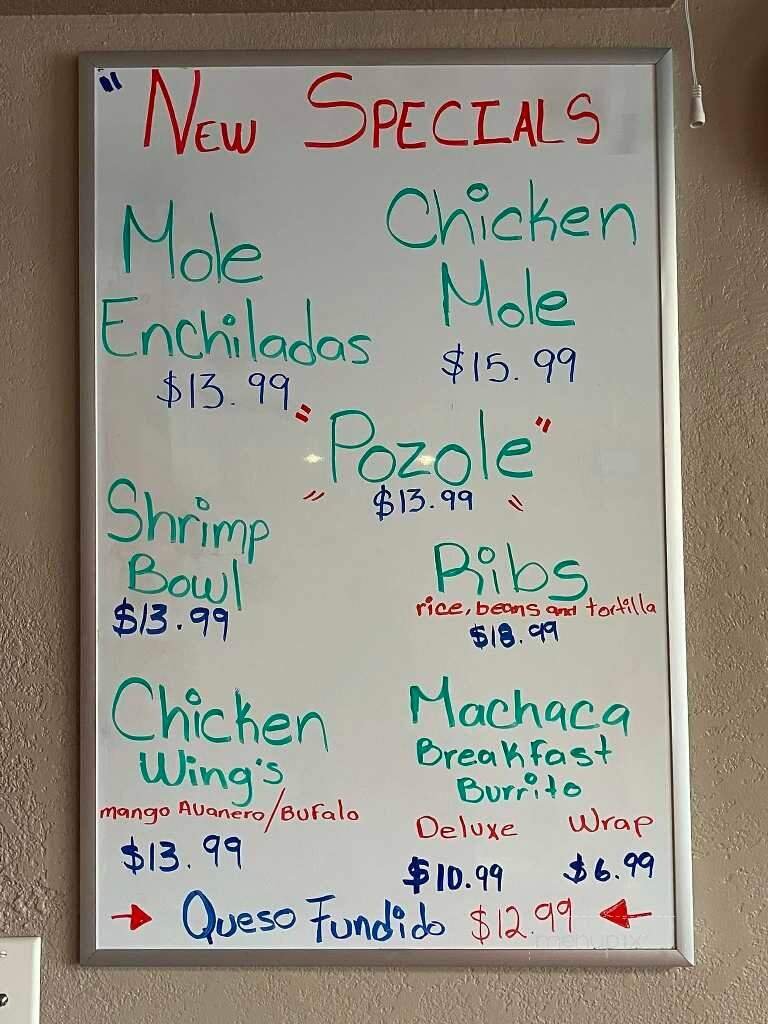 "New Specials
Mole
Enchiladas
$13.99
Chicken
Mole
$15.99
"Pozole"
$13.99
Shrimp
Bowl
$13.99
Ribs
rice, beans and tortilla
$18.99
Chicken
Wing's
mango Avanero/Bufalo
$13.99
Machaca
Breakfast
Burrito
Deluxe Wrap
$10.99 $6.99
→ Queso Fundido $12.99 ←
menupix